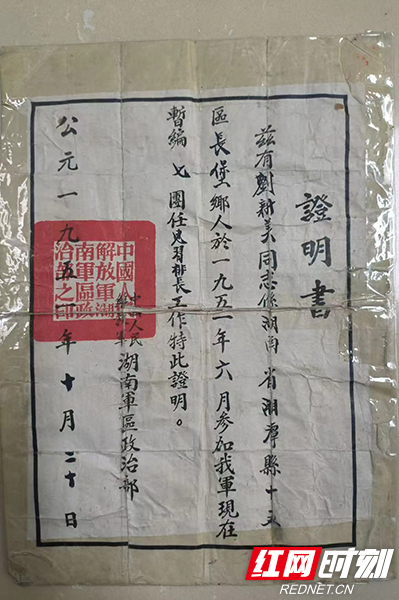 證明書
茲有劉新美同志係湖南省湘縣十五
區長堡鄉人於一九五一年六月參加我軍現在
暫編七團任見習排長工作特此證明。
中國人民
解放軍
湖南軍區政治部
公元一九五年十月二十日
中國人民
解放軍湖
南軍區政
治部之印
红网时刻
REDNET.CN